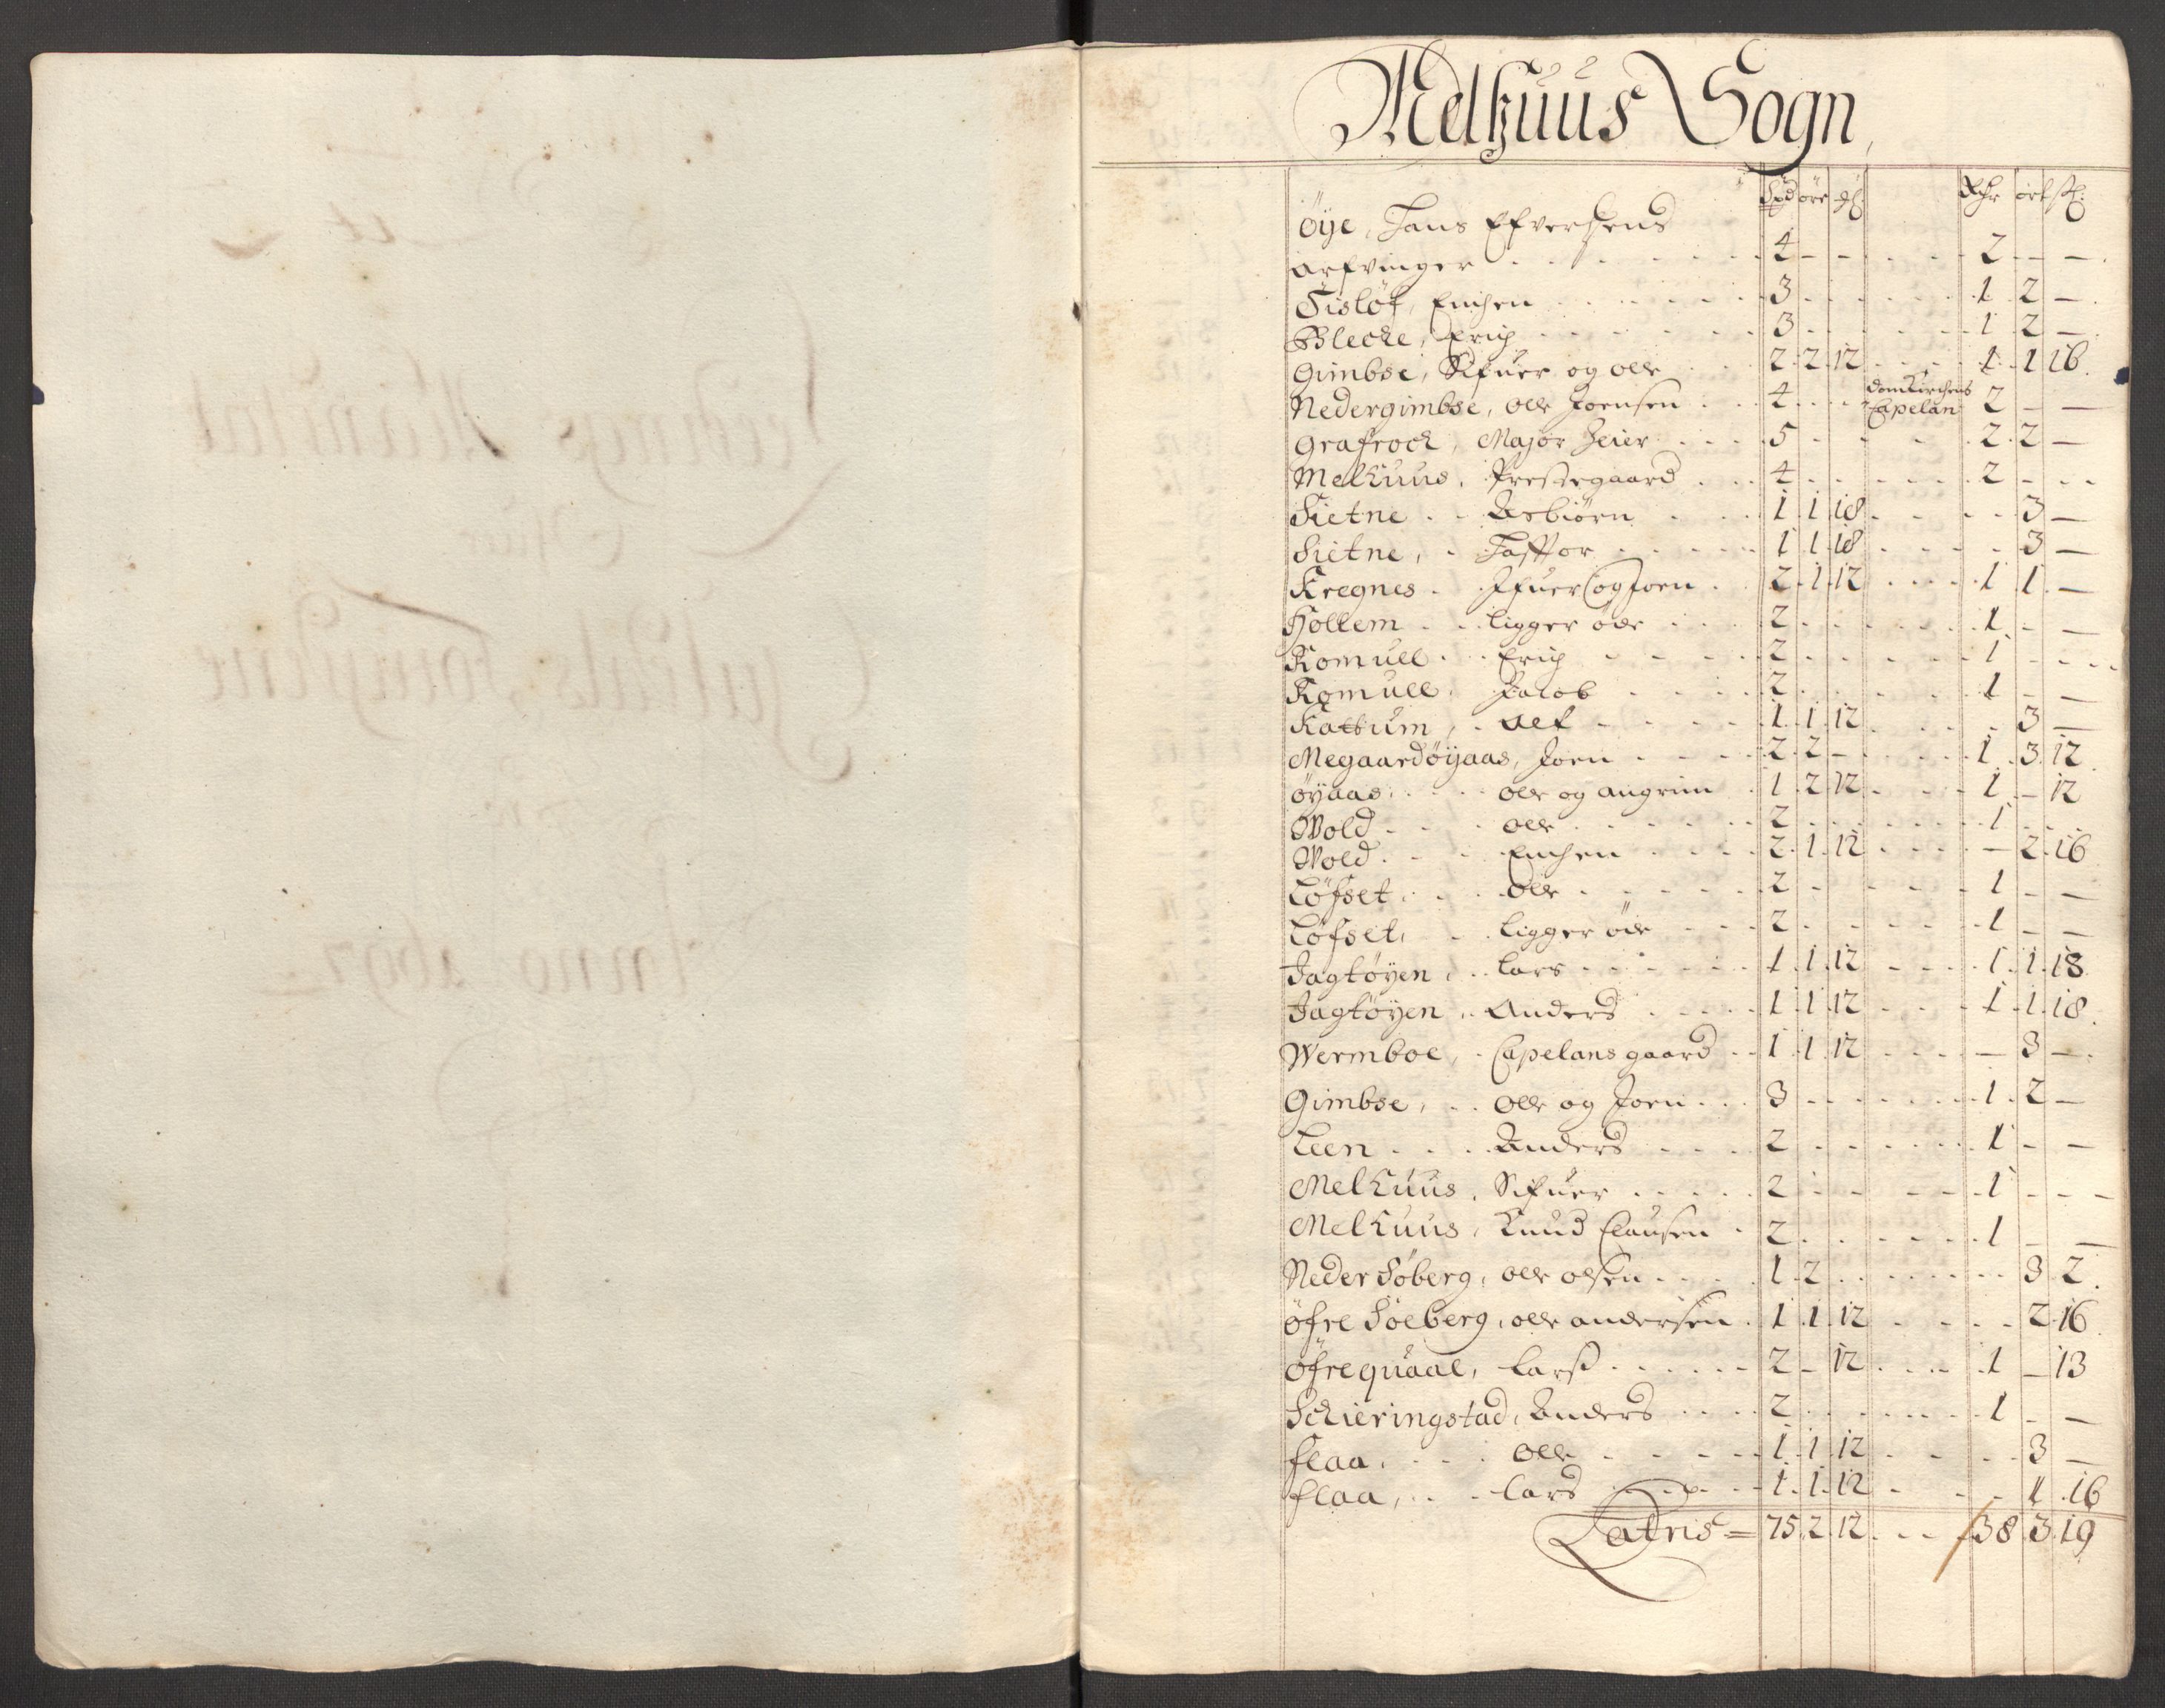 Melhuus Sogn
Spd øre Rdr ort
Øye, Hans Efversens
arfvinger 4 - - 2 - -
Tisløf, Enchen 3 1 2 -
Blecke, Erich 3 1 2 -
Gimbse, Sifuer og Olle 2 2 12 1 1 16
Nedergimbse, Olle Joensen 4 domkirchens Capelan 2 - -
Grafrock, Major Heier 5 2 2 -
Melhuus, Prestegaard 4 2 - -
Sietne Esbiørn 1 1 18 3 -
Sietne, 1 1 18 3 -
Kregnes Ifuer og Joen 2 1 12 1 1 -
Hollem ligger øde 2 1 - -
Komull Erich 2 1 - -
Komull Jacob 2 1 - -
Kattum, 1 1 12 3 -
Megaardøyaas, Joen 2 2 - 1 3 12
Øyaas olle og angrim 1 2 12 1 - 12
Wold olle 2 1 - -
Wold Enchen 2 1 12 - 2 16
Løfset olle 2 1 - -
Løfset, ligger øde 2 1 - -
Jagtøyen, Lars 1 1 12 1 1 18
Jagtøyen, Anders 1 1 12 1 1 18
Wermboe, Capelans gaard 1 1 12 - 3 -
Gimbse, Olle og Joen 3 1 2 -
Leen Anders 2 1 - -
Melhuus, Sifuer 2 1 - -
Melhuus, Knud Clausen 2 1 - -
Neder Søberg, olle olsen 1 2 3 2
Øfre Søeberg, olle andersen 1 1 12 2 16
Øfrequaal, Lars 2 - 12 1 - 13
Schieringstad, Anders 2 1 - -
Flaa, Olle 1 1 12 3 -
Flaa, Lars 1 1 12 1 16
Latris = 75 2 12 38 3 19